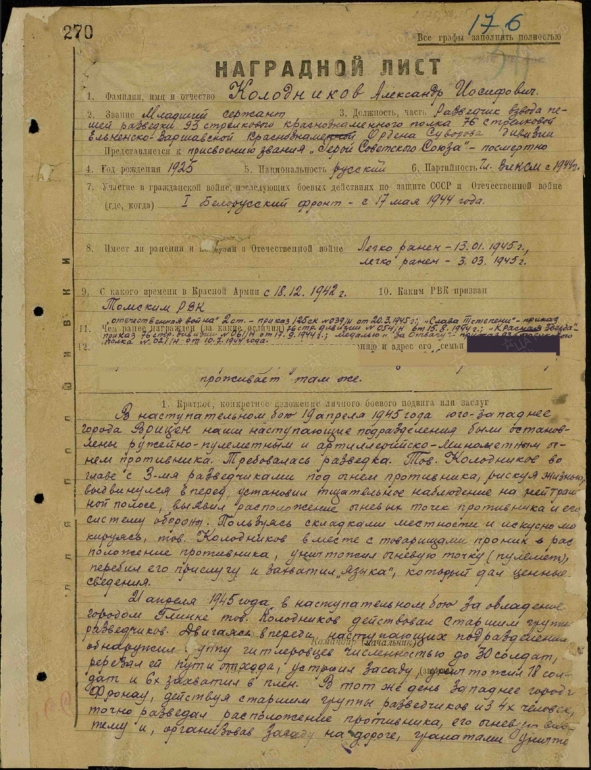 270
176
Все графы заполнять полностью
НАГРАДНОЙ ЛИСТ
1. Фамилия, имя и отчество Колодников Александр Иосифович.
2. Звание Младший сержант 3. Должность, часть Разведчик взвода пе-
шей разведки 93 стрелкового краснознаменного полка 76 стрелковой
Ельненско-Варшавской Краснознаменной Ордена Суворова дивизии
Представляется к присвоению звания „Герой Советского Союза" – посмертно
4. Год рождения 1925 5. Национальность русский 6. Партийность чл. ВЛКСМ с 1944г.
7. Участие в гражданской войне, последующих боевых действиях по защите СССР и Отечественной войне
(где, когда) I Белорусский фронт – с 17 мая 1944 года.
8. Имеет ли ранения и в Отечественной войне Легко ранен – 13.01.1945г.,
легко ранен – 3.03.1945г.
9. С какого времени в Красной Армии с 18.12.1942г. 10. Каким РВК призван
Томским РВК
„Отечественная война" 2 ст. – приказ 125ск №039/н от 20.3.1945г.; „Слава III степени" – приказ
11. Чем ранее награжден (за какие отличия) 76 стр. дивизии №054/н от 15.8.1944г.; „Красная Звезда"
приказ 76 стр. дивизии №061/н от 17.9.1944г.; медалью „За Отвагу" – приказ 93 стрелкового
12. полка №021/н от 10.7.1944 года. и адрес его семьи
проживает там же.
1. Краткое, конкретное изложение личного боевого подвига или заслуг
В наступательном бою 19 апреля 1945 года юго-западнее
города Врицен наши наступающие подразделения были останов-
лены ружейно-пулеметным и артиллерийско-минометным ог-
нем противника. Требовалась разведка. Тов. Колодников во
главе с 3-мя разведчиками под огнем противника, рискуя жизнью,
выдвинулся вперед, установил тщательное наблюдение на нейтраль
ной полосе, выявил расположение огневых точек противника и его
систему обороны. Пользуясь складками местности и искусно мас
кируясь, тов. Колодников вместе с товарищами проник в рас
положение противника, уничтожил огневую точку (пулемет),
перебил его прислугу и захватил „языка", который дал ценные
сведения.
21 апреля 1945 года, в наступательном бою за овладение
городом Глинке тов. Колодников действовал старшим группы
разведчиков. Двигаясь впереди наступающих подразделений
обнаружил группу гитлеровцев численностью до 30 солдат,
перерезал ей пути отхода, устроил засаду, уничтожил 18 сол-
дат и 6х захватил в плен. В тот же день западнее города
Фронау, действуя старшим группы разведчиков из 4х человек,
точно разведал расположение противника, его огневую сис-
тему и, организовав засаду на дороге, гранатами уничто